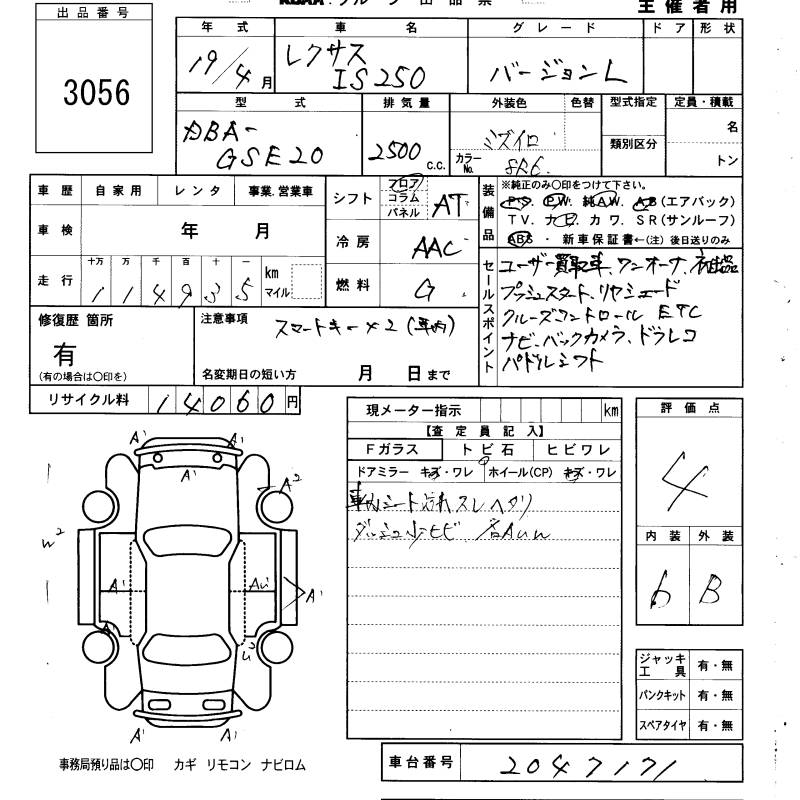 主催者用
出品番号
3056
年式 車名 グレード ドア 形状
19/4月 レクサス IS250 バージョンL
型式 排気量 外装色 色替 型式指定 定員・積載
DBA-GSE20 2500 c.c. ミズイロ カラーNo. 8R6. 類別区分 名 トン
車歴 自家用 レンタ 事業.営業車
シフト フロア コラム パネル AT
装備品 ※純正のみ〇印をつけて下さい。
PS. PW. 純AW. AB(エアバック)
TV. ナビ. カワ. SR(サンルーフ)
ABS ・ 新車保証書←(注) 後日送りのみ
車検 年 月
冷房 AAC
走行 十万 万 千 百 十 一
114935 km マイル
燃料 G
セールスポイント ユーザー買取車、ワンオーナ、
プッシュスタート、リヤシェード
クルーズコントロール ETC
ナビ、バックカメラ、ドラレコ
パドルシフト
修復歴 箇所
有
(有の場合は〇印を)
注意事項 スマートキー×2 (車内)
名変期日の短い方 月 日まで
リサイクル料 14060円
現メーター指示 km
【査定員記入】
Fガラス トビ石 ヒビワレ
ドアミラー キズ・ワレ ホイール(CP) キズ・ワレ
車内シート スレ ヘタリ
ダッシュ小ヒビ
評価点
4
内装 外装
6 B
A' A'
A'
A²
W²
A' AU' A'
A'
U²
A' A'
ジャッキ工具 有・無
パンクキット 有・無
スペアタイヤ 有・無
事務局預り品は〇印 カギ リモコン ナビロム
車台番号 2047171